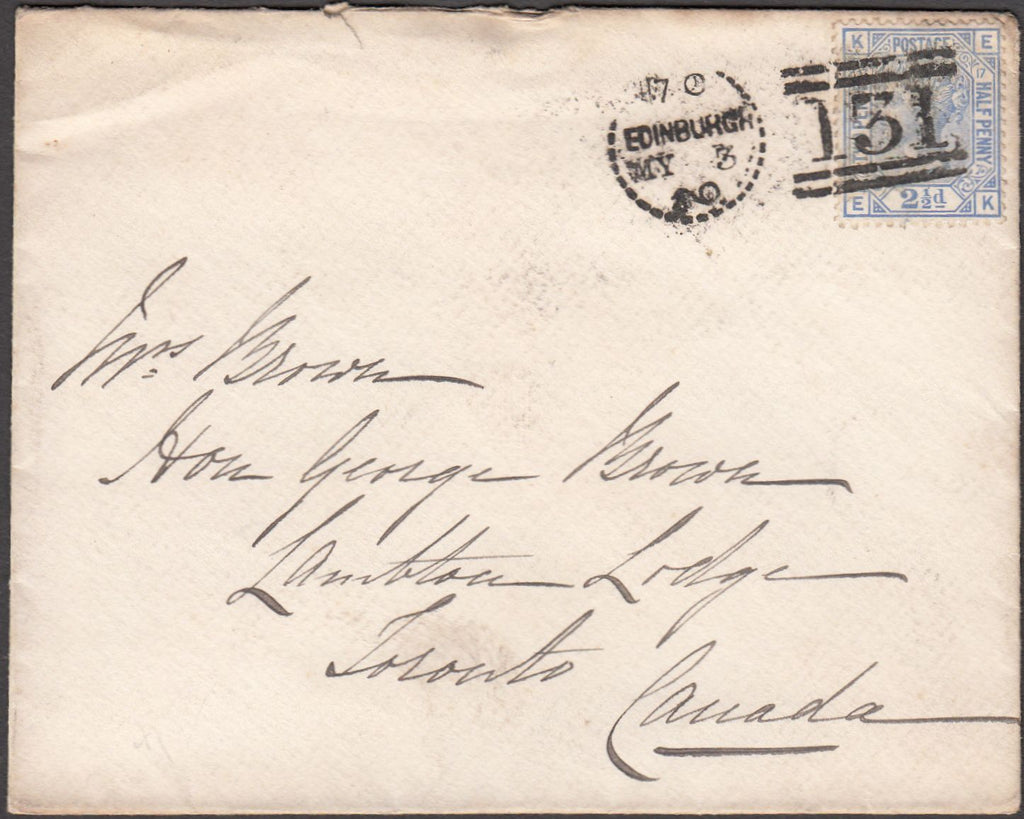 K POSTAGE E
17
HALF PENNY
E 2½d K
EDINBURGH
MY 3
131
Mrs Brown
Hon George Brown
Lambton Lodge
Toronto Canada